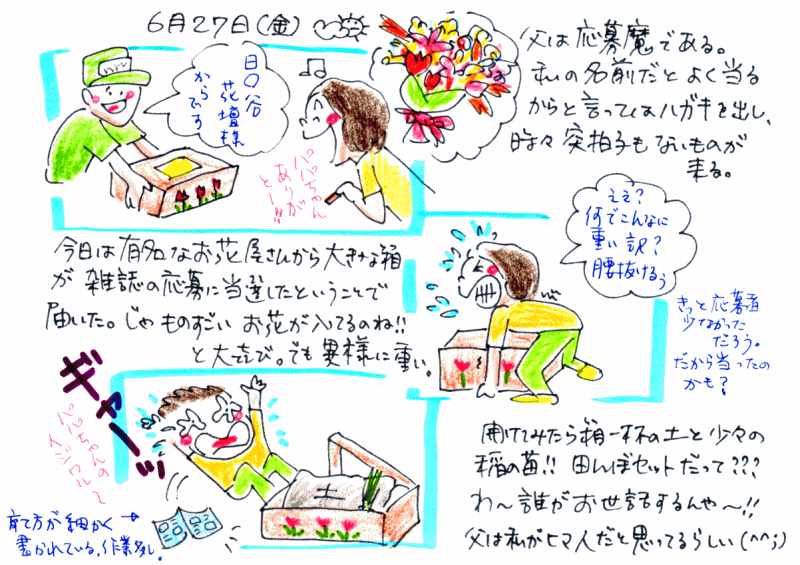 6月27日(金)
父は応募魔である。
私の名前だとよく当る
からと言ってはハガキを出し、
時々突拍子もないものが
来る。
日〇谷
花壇様
からです
パパちゃん
ありが
とー!!
今日は有名なお花屋さんから大きな箱
が雑誌の応募に当選したということで
届いた。じゃものすごいお花が入てるのね!!
と大喜び。でも異様に重い。
ええ?
何でこんなに
重い訳?
腰抜けるぅ
きっと応募者
少なかった
だろう。
だから当ったの
かも?
ギャーッ
パパちゃんの
イジワル〜
土
育て方が細かく
書かれている。作業多し。
開けてみたら箱一杯の土と少々の
稲の苗!!田んぼセットだって???
わ〜誰がお世話するんや〜!!
父は私がヒマ人だと思ってるらしい(^^;)